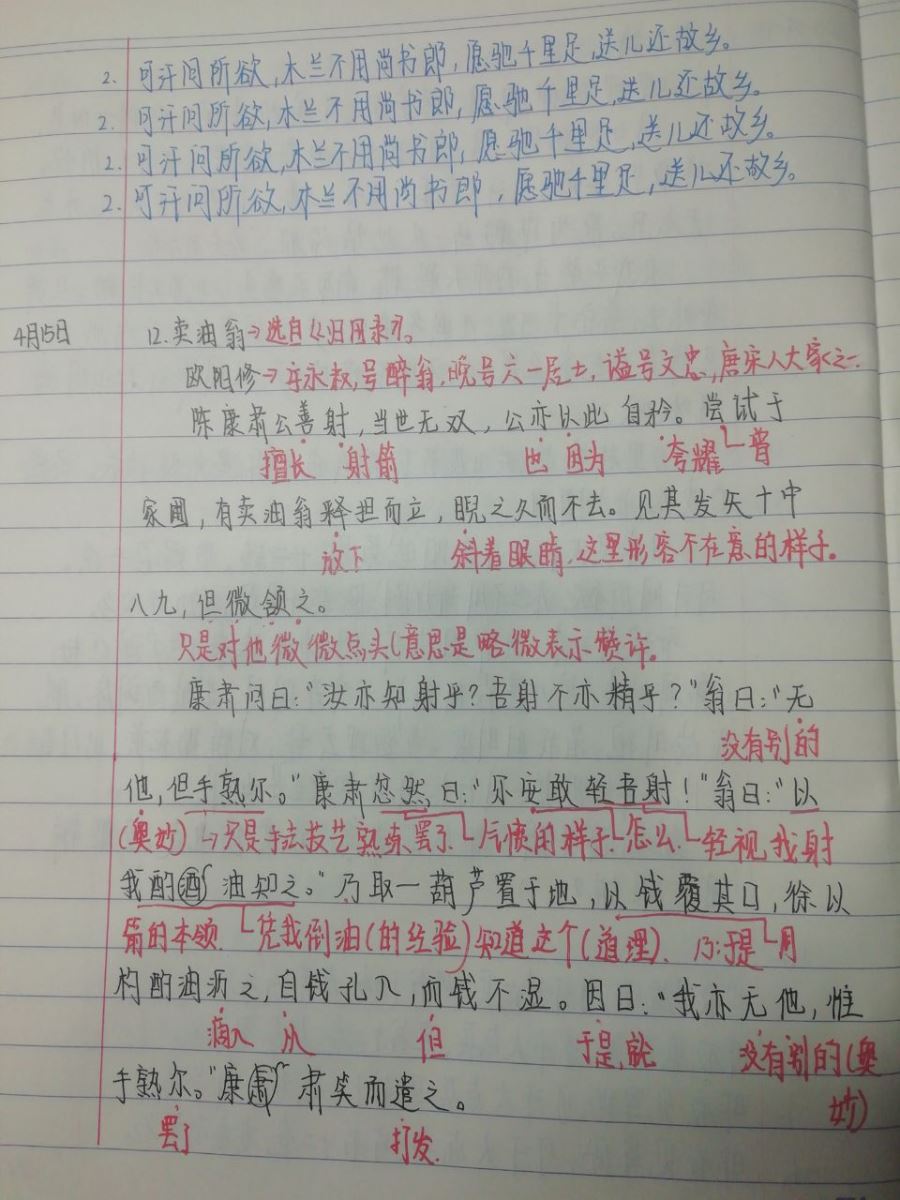 2. 可汗问所欲,木兰不用尚书郎,愿驰千里足,送儿还故乡。
2. 可汗问所欲,木兰不用尚书郎,愿驰千里足,送儿还故乡。
2. 可汗问所欲,木兰不用尚书郎,愿驰千里足,送儿还故乡。
2. 可汗问所欲,木兰不用尚书郎,愿驰千里足,送儿还故乡。
4月15日 12.卖油翁→选自《归田录》。
欧阳修→字永叔,号醉翁,晚号六一居士,谥号文忠,唐宋八大家之一.
陈康肃公善射,当世无双,公亦以此自矜。尝试于
擅长 射箭 也 因为 夸耀 曾
家圃,有卖油翁释担而立,睨之久而不去。见其发矢十中
放下 斜着眼睛,这里形容不在意的样子。
八九,但微颔之。
只是对他微微点头(意思是略微表示赞许。
康肃问曰:“汝亦知射乎?吾射不亦精乎?”翁曰:“无
没有别的
他,但手熟尔。”康肃忿然曰:“尔安敢轻吾射!”翁曰:“以
(奥妙) →只是手法技艺熟练罢了. 气愤的样子. 怎么. 轻视我射
我酌油知之。”乃取一葫芦置于地,以钱覆其口,徐以
箭的本领. 凭我倒油(的经验)知道这个(道理). 乃:于是 用
杓酌油沥之,自钱孔入,而钱不湿。因曰:“我亦无他,惟
滴入 从 但 于是,就 没有别的(奥
手熟尔。”康肃笑而遣之。
妙)
罢了 打发.